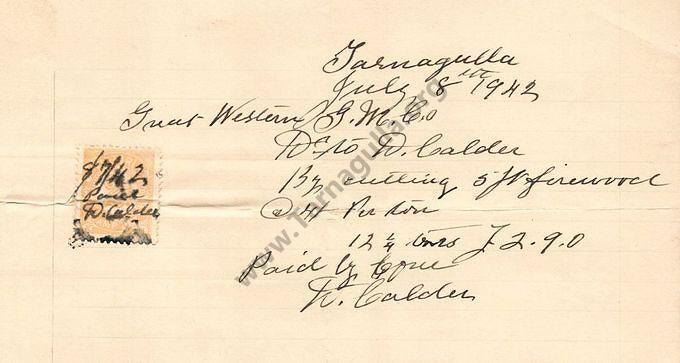 Tarnagulla
July 8th 1942
Great Western G.M.Co
Dr to D. Calder
By cutting 5 ft firewood
@ 4/ Per ton
12 1/4 tons £ 2.9.0
Paid by
D. Calder
8/7/42
Paid
D. Calder
www.Tarnagulla.org